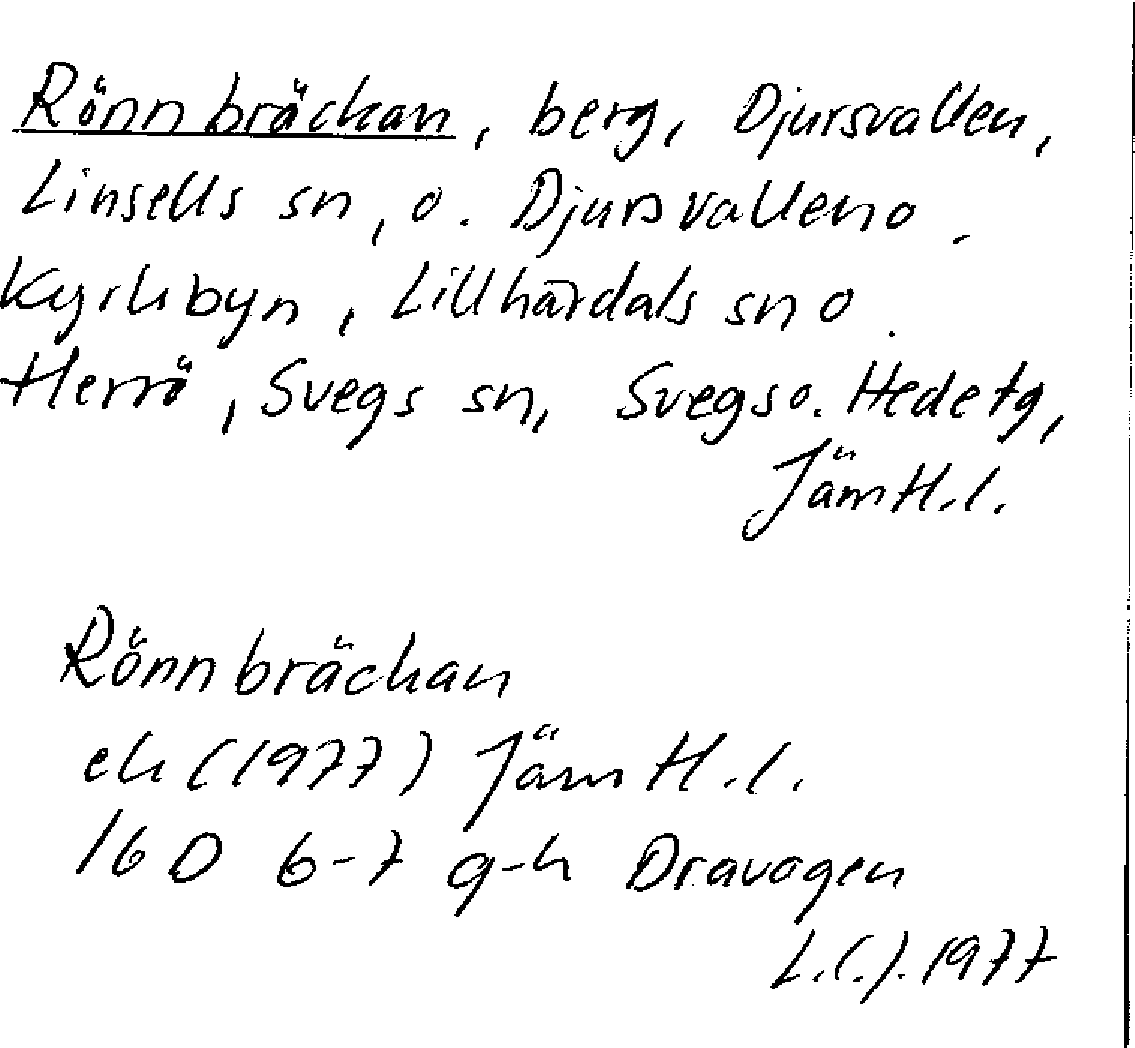 Rönnbräckan, berg, Djursvallen,
Linsells sn, o. Djursvallen o.
Kyrkbyn, Lillhärdals sn o.
Herrö, Svegs sn, Svegs o. Hede tg,
Jämtl. l.
Rönnbräckan
ek (1977) Jämtl. l.
16D 6-7 g-h Dravagen
L.(.). 1977